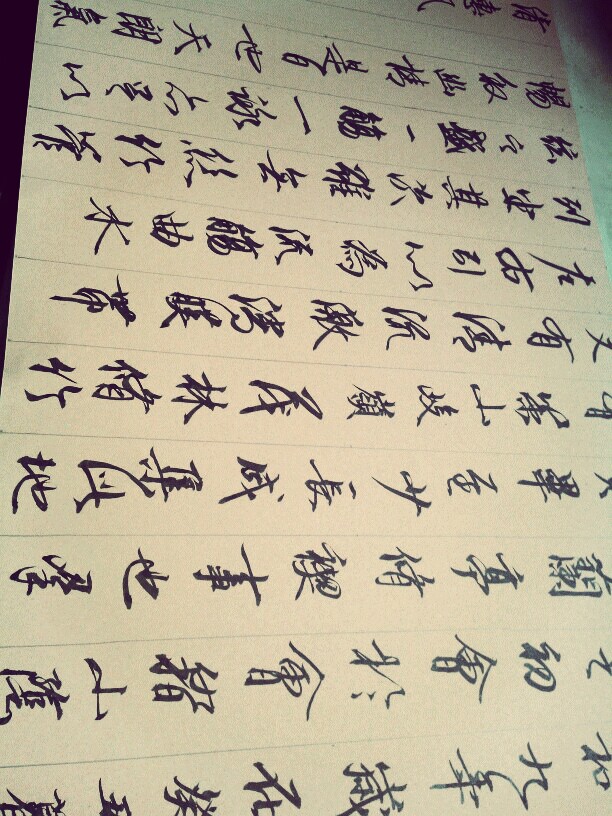 和九年歲在癸丑暮
之初會於會稽山陰
蘭亭脩禊事也羣
畢至少長咸集此地
有崇山峻嶺茂林脩竹
又有清流激湍暎帶
左右引以為流觴曲水
列坐其次雖無絲竹管
絃之盛一觴一詠亦足以
暢敘幽情是日也天朗氣
清惠風